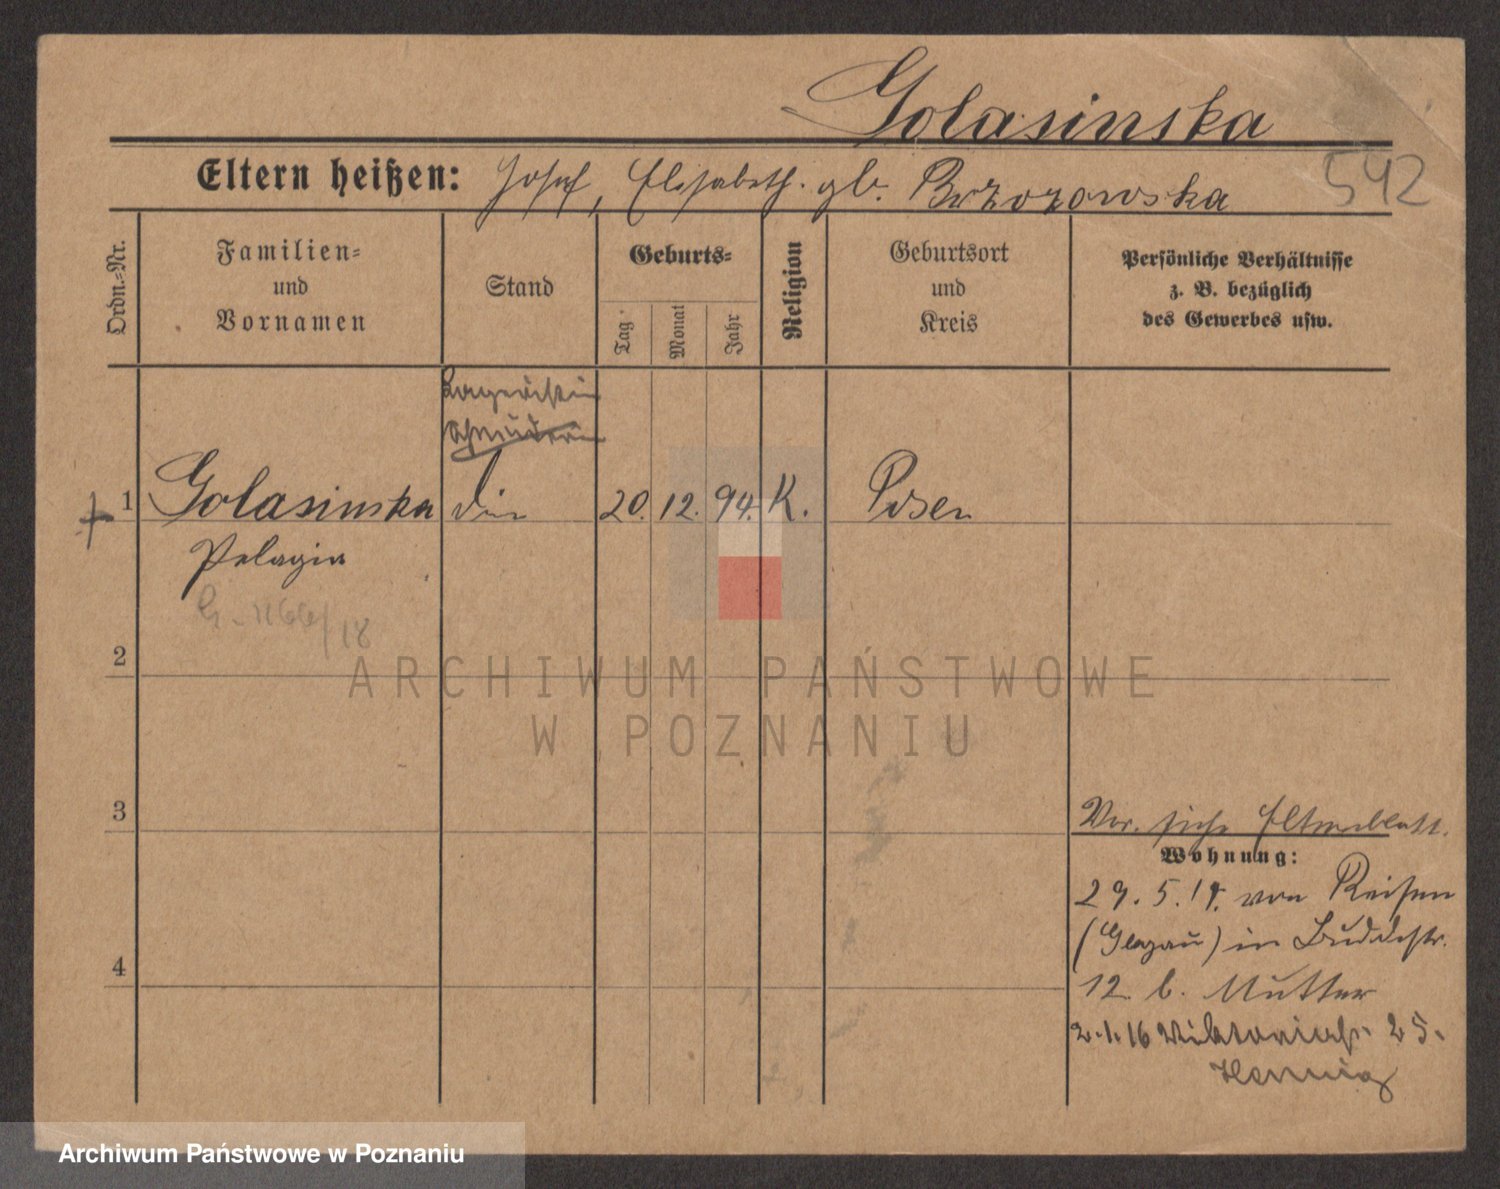 Golasinska
Eltern heißen: Josef, Elisabeth. gb. Brzozowska
542
Ordn.=Nr.
Familien=
und
Vornamen
Stand
Geburts=
Tag
Monat
Jahr
Religion
Geburtsort
und
Kreis
Persönliche Verhältnisse
z. B. bezüglich
des Gewerbes usw.
Lageristin
1 Golasinska 20. 12. 94. K. Posen
Pelagia
2
3
4
Vor. siehe Elternblatt.
Wohnung:
29. 5. 14. von Reisen
(Glogau) in Buddestr.
12. b. Mutter
2.1.16 Viktoriastr. 25.
Hennig
ARCHIWUM PAŃSTWOWE
W POZNANIU
Archiwum Państwowe w Poznaniu